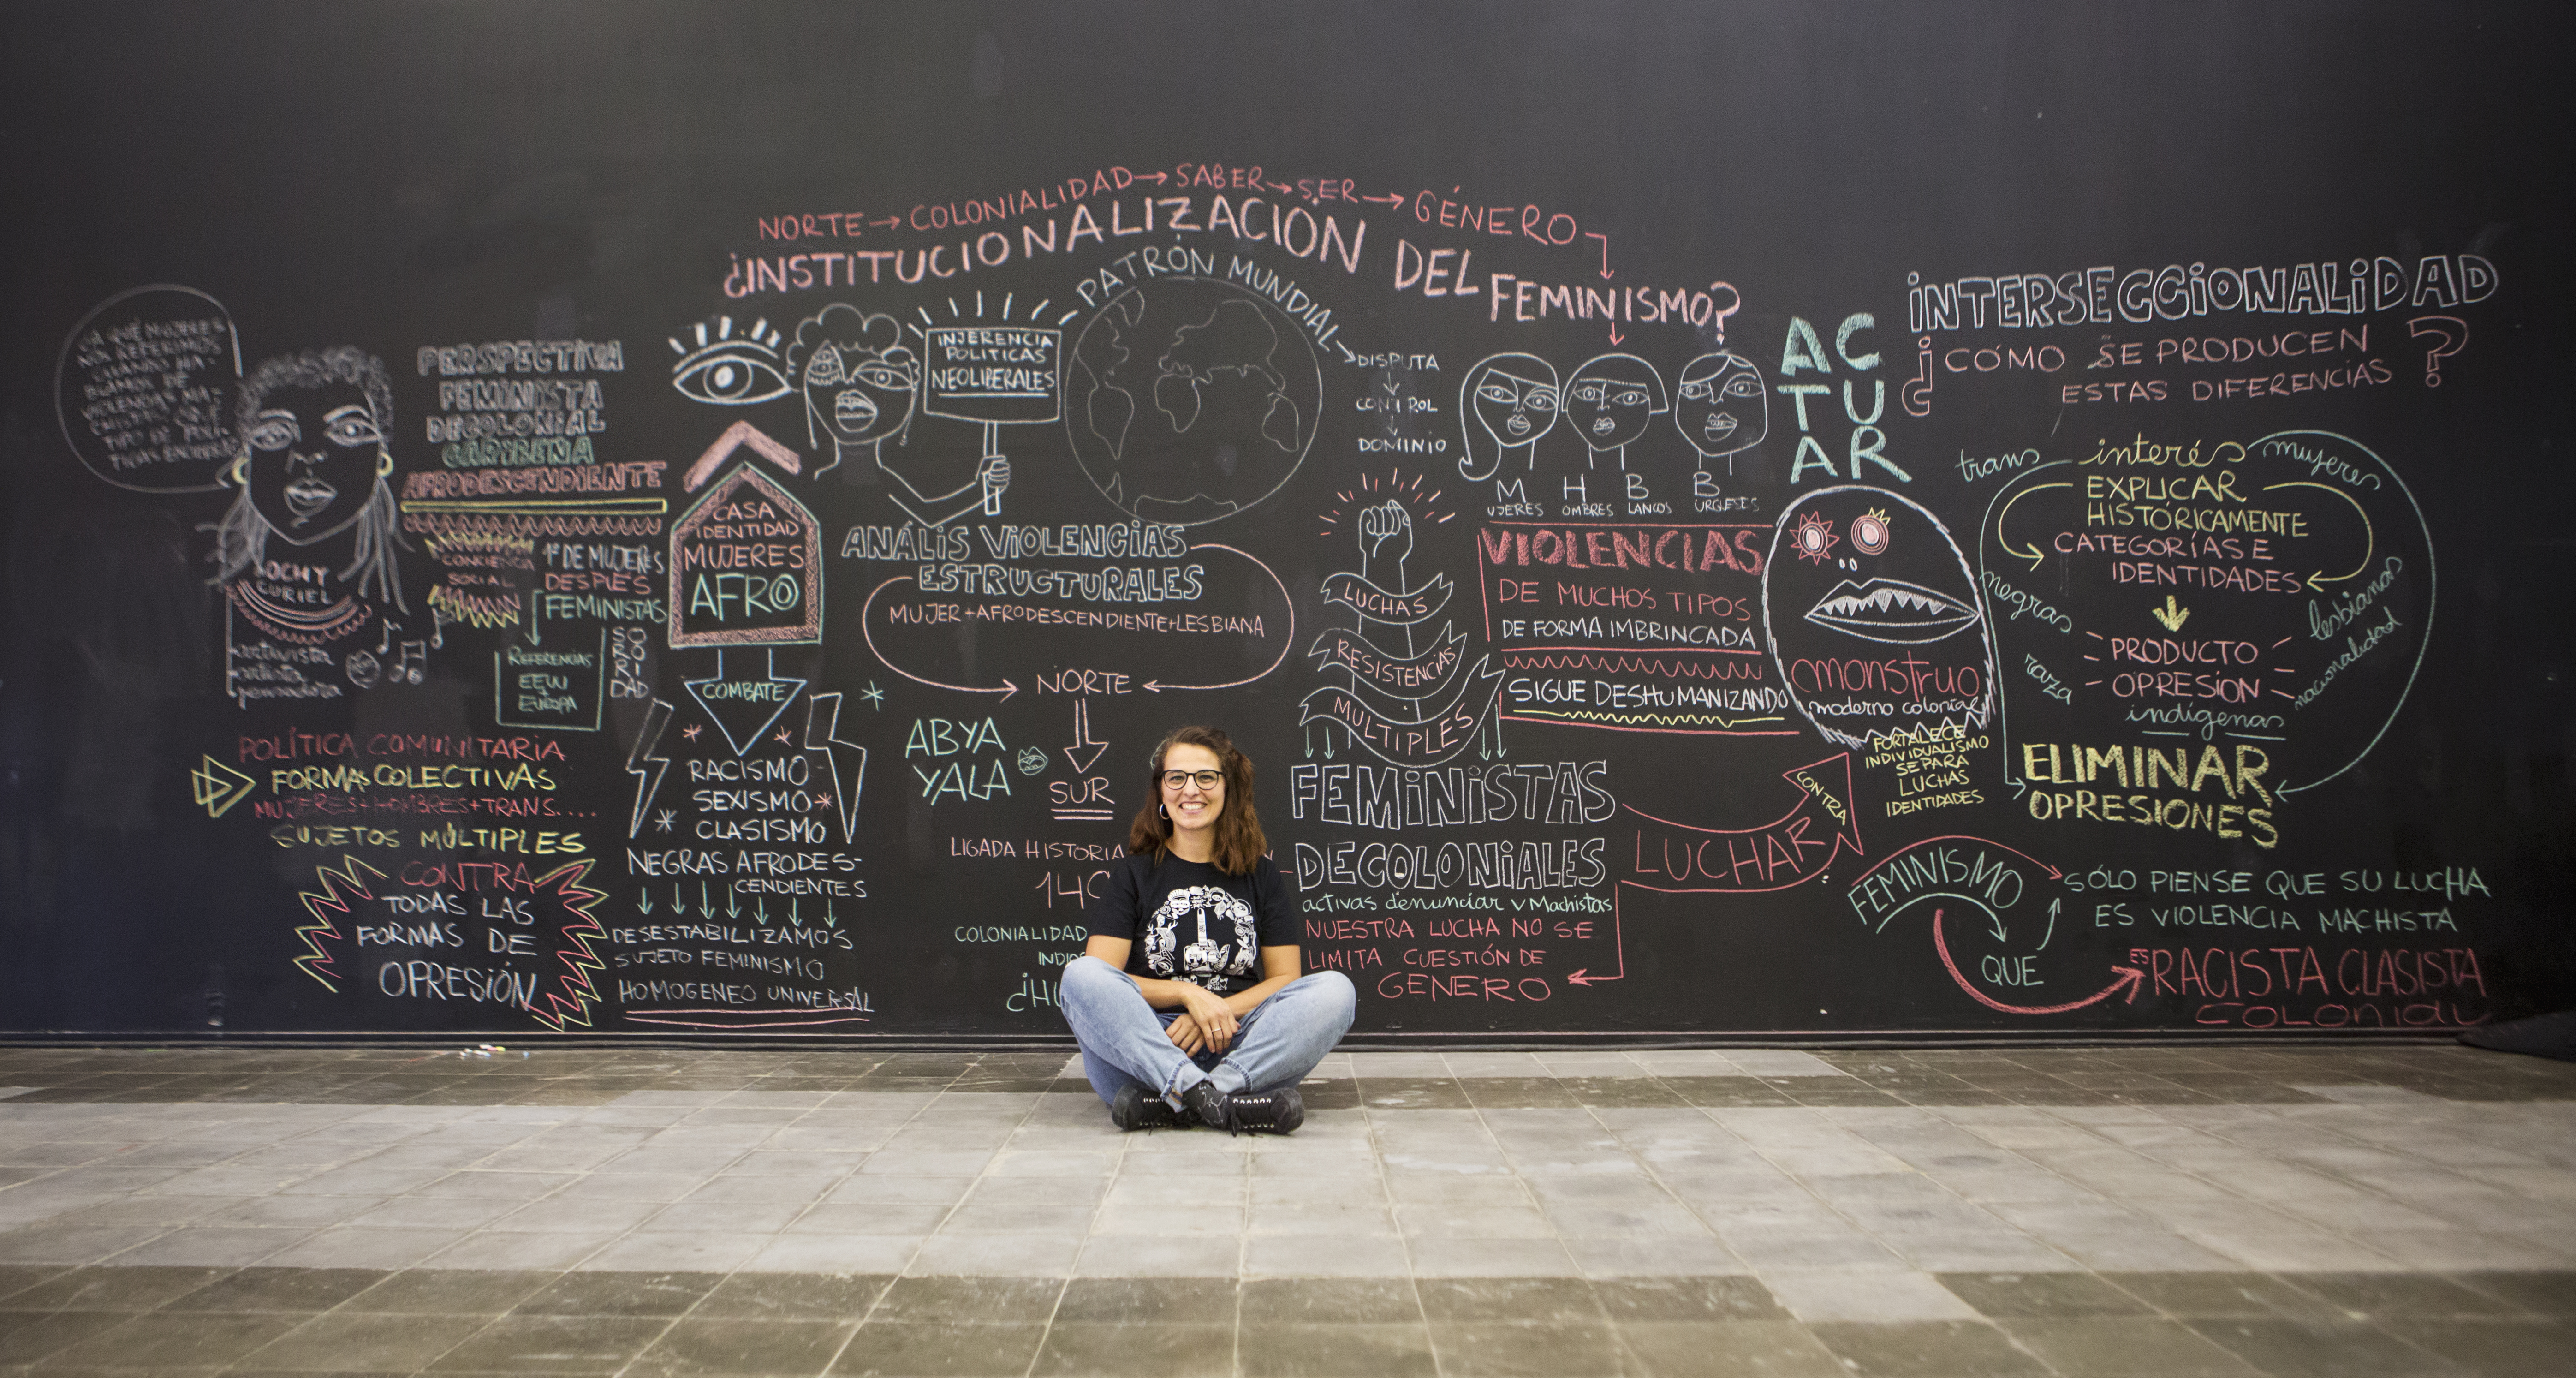 NORTE → COLONIALIDAD → SABER → SER → GÉNERO
¿INSTITUCIONALIZACIÓN DEL FEMINISMO?
¿A QUÉ MUJERES
NOS REFERIMOS
CUANDO HA-
BLAMOS DE
VIOLENCIAS MA-
OCHY
CURIEL
artivista
artista
pensadora
PERSPECTIVA
FEMINISTA
DECOLONIAL
CARIBEÑA
AFRODESCENDIENTE
CONCIENCIA
SOCIAL
1º DE MUJERES
DESPUÉS
FEMINISTAS
REFERENCIAS
EEUU
EUROPA
SO
RO
RI
DAD
POLÍTICA COMUNITARIA
FORMAS COLECTIVAS
MUJERES + HOMBRES + TRANS....
SUJETOS MÚLTIPLES
CONTRA
TODAS LAS
FORMAS DE
OPRESIÓN
CASA
IDENTIDAD
MUJERES
AFRO
COMBATE
RACISMO
SEXISMO
CLASISMO
NEGRAS AFRODES-
CENDIENTES
DESESTABILIZAMOS
SUJETO FEMINISMO
HOMOGENEO UNIVERSAL
INJERENCIA
POLITICAS
NEOLIBERALES
PATRÓN MUNDIAL
DISPUTA
CONTROL
DOMINIO
ANÁLIS VIOLENCIAS
ESTRUCTURALES
MUJER+AFRODESCENDIENTE+LESBIANA
NORTE
SUR
ABYA
YALA
LIGADA HISTORIA
COLONIALIDAD
LUCHAS
RESISTENCIAS
MULTIPLES
FEMINISTAS
DECOLONIALES
activas denunciar v Machistas
NUESTRA LUCHA NO SE
LIMITA CUESTIÓN DE
GENERO
M H B B
UJERES OMBRES LANCOS URGUESES
VIOLENCIAS
DE MUCHOS TIPOS
DE FORMA IMBRINCADA
SIGUE DESHUMANIZANDO
LUCHAR
CONTRA
AC
TU
AR
monstruo
moderno colonial
FORTALECE
INDIVIDUALISMO
SEPARA
LUCHAS
IDENTIDADES
INTERSECCIONALIDAD
¿CÓMO SE PRODUCEN
ESTAS DIFERENCIAS?
trans
interés
mujeres
EXPLICAR
HISTÓRICAMENTE
CATEGORÍAS E
IDENTIDADES
negras
lesbianas
PRODUCTO
OPRESIÓN
raza
nacionalidad
indígenas
ELIMINAR
OPRESIONES
FEMINISMO
QUE
SÓLO PIENSE QUE SU LUCHA
ES VIOLENCIA MACHISTA
ES RACISTA CLASISTA
COLONIAL